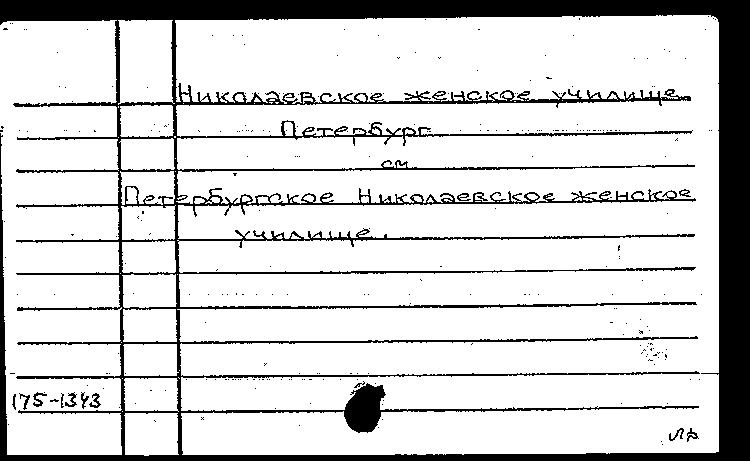 Николаевское женское училище
Петербург
см
Петербургское Николаевское женское
училище.
175-1343